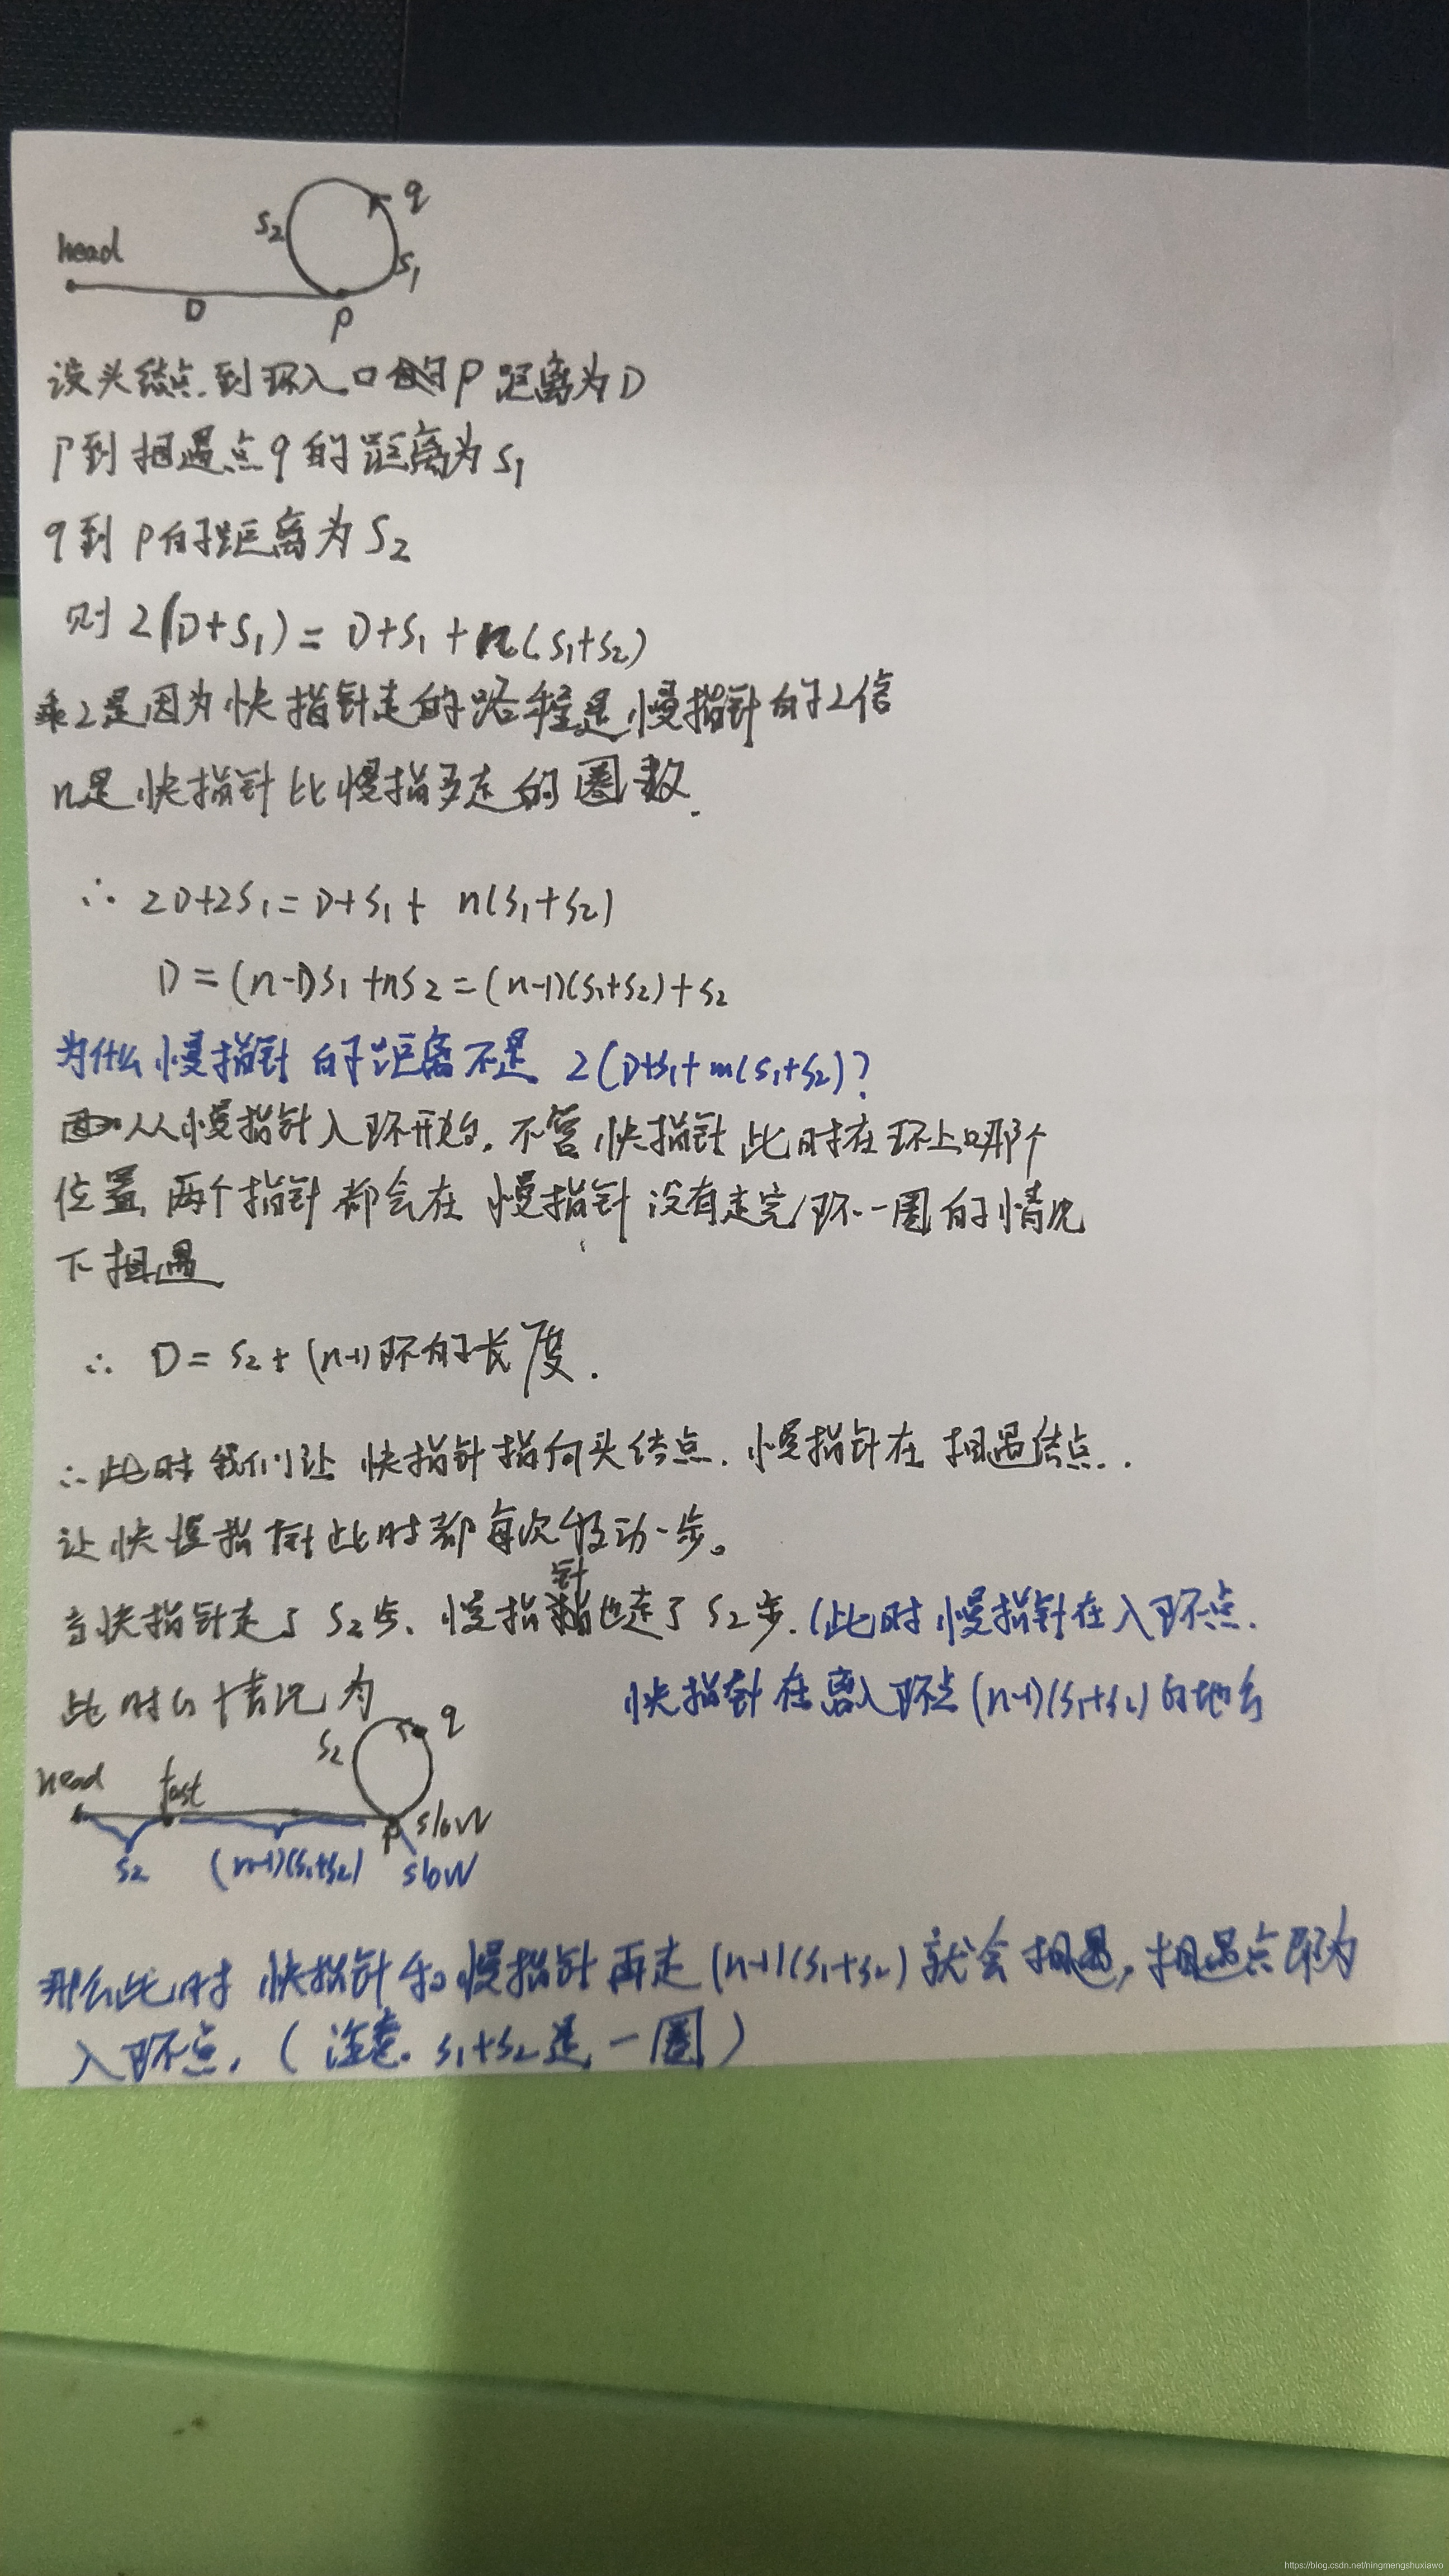 head
S2
q
S1
D
P
设头结点到环入口的P距离为D
P到相遇点q的距离为S1
q到P的距离为S2
则 2(D+S1) = D+S1+n(S1+S2)
乘2是因为快指针走的路程是慢指针的2倍
n是快指针比慢指多走的圈数.
∴ 2D+2S1=D+S1+ n(S1+S2)
D=(n-1)S1+nS2=(n-1)(S1+S2)+S2
为什么慢指针的距离不是 2(D+S1+m(S1+S2)?
从慢指针入环开始,不管快指针此时在环上哪个
位置,两个指针都会在慢指针没有走完环一圈的情况
下相遇
∴ D=S2+(n-1)环的长度.
∴此时我们让快指针指向头结点.慢指针在相遇结点..
让快慢指针此时都每次移动一步。
当快指针走了S2步、慢指针也走了S2步.(此时慢指针在入环点.
快指针在离入环点(n-1)(S1+S2)的地方
此时的情况为
S2
q
head
fast
P
slow
S2
(n-1)(S1+S2)
slow
那么此时快指针和慢指针再走(n-1)(S1+S2)就会相遇,相遇点即为
入环点.(注意.S1+S2是一圈)
https://blog.csdn.net/ningmengshuxiawo